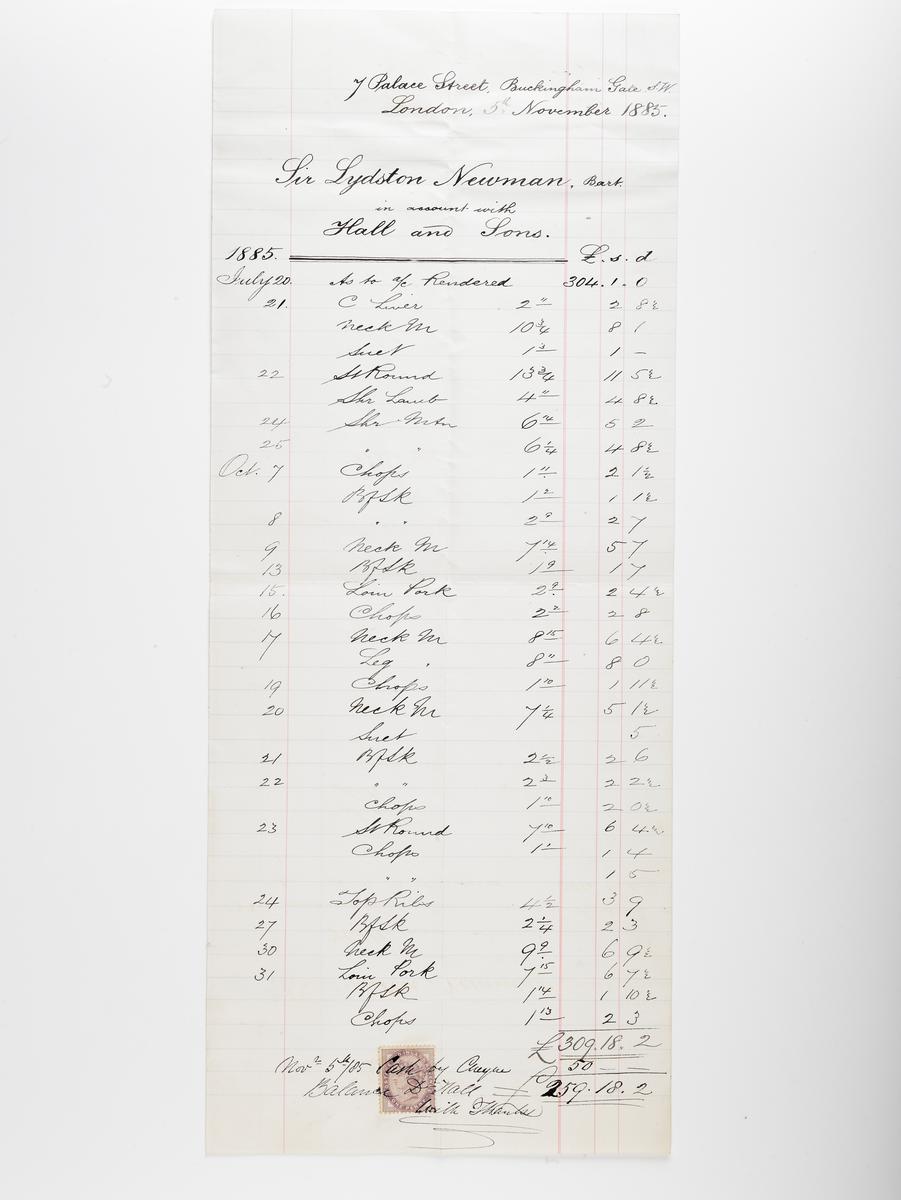 7 Palace Street, Buckingham Gate S.W.
London, 5th November 1885.
Sir Lydston Newman, Bart.
in account with
Hall and Sons.
1885. £. s. d
July 20. As to a/c Rendered 304. 1. 0
21. C Liver 2 " 2 8½
Neck M 10¾ 8 1
Suet 1 3 1 –
22 St Round 13¾ 11 5½
Shr Lamb 4 " 4 8½
24 Shr Mtn 6 14 5 2
25 " " 6¼ 4 8½
Oct. 7 Chops 1 11 2 1½
Bfsk 1 2 1 1½
8 " " 2 9 2 7
9 Neck M 7 14 5 7
13 Bfsk 1 9 1 7
15. Loin Pork 2 9 2 4½
16 Chops 2 2 2 8
17 Neck M 8 15 6 4½
Leg " 8 " 8 0
19 Chops 1 10 1 11½
20 Neck M 7¼ 5 1½
Suet 5
21 Bfsk 2½ 2 6
22 " " 2 3 2 2½
Chops 1 10 2 0½
23 St Round 7 10 6 4½
Chops 1 1 1 4
" " 1 5
24 Top Ribs 4½ 3 9
27 Bfsk 2¼ 2 3
30 Neck M 9 9 6 9½
31 Loin Pork 7 15 6 7½
Bfsk 1 14 1 10½
Chops 1 13 2 3
£309. 18. 2
Nov 5th/85 Cash by Cheque 50 – –
Balance D Hall £259. 18. 2
With Thanks